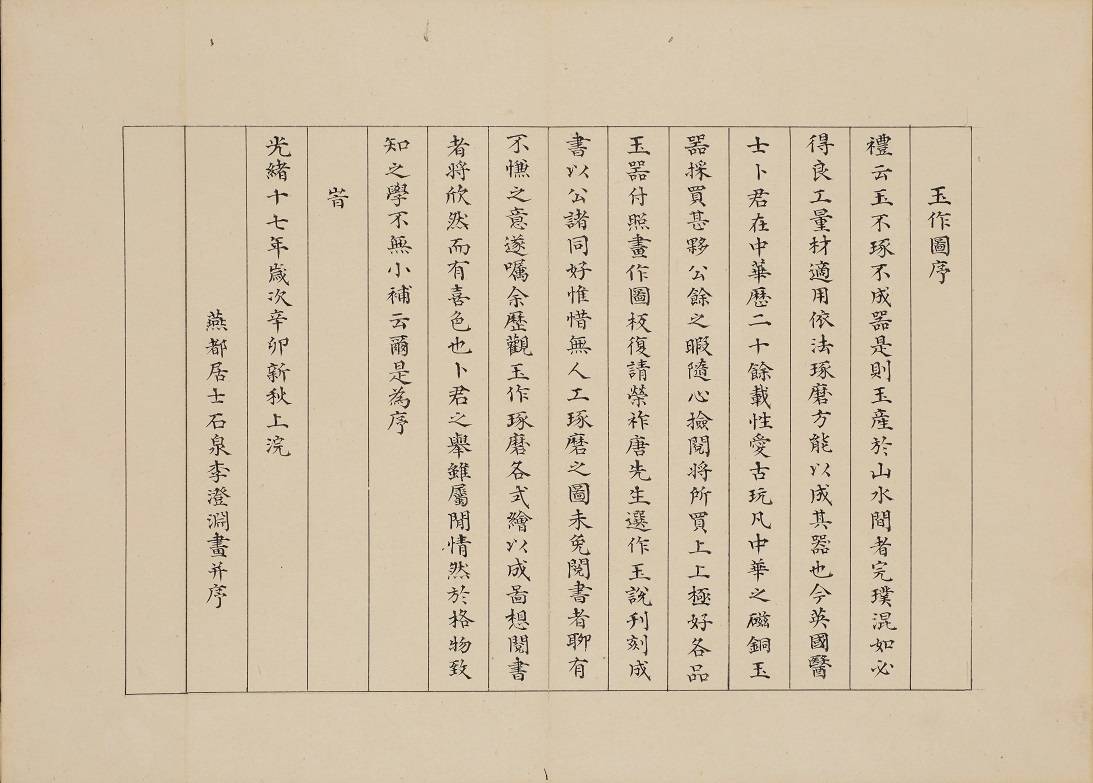 玉作圖序
禮云玉不琢不成器是則玉産於山水間者完璞混如必
得良工量材適用依法琢磨方能以成其器也今英國醫
士卜君在中華歷二十餘載性愛古玩凡中華之磁銅玉
器採買甚夥公餘之暇隨心撿閱將所買上上極好各品
玉器付照畫作圖板復請榮祚唐先生選作玉說刋刻成
書以公諸同好惟惜無人工琢磨之圖未免閱書者聊有
不慊之意遂囑余歷觀玉作琢磨各式繪以成啚想閱書
者將欣然而有喜色也卜君之舉雖屬閒情然於格物致
知之學不無小補云爾是為序
旹
光緒十七年歲次辛卯新秋上浣
燕都居士石泉李澄淵畫并序